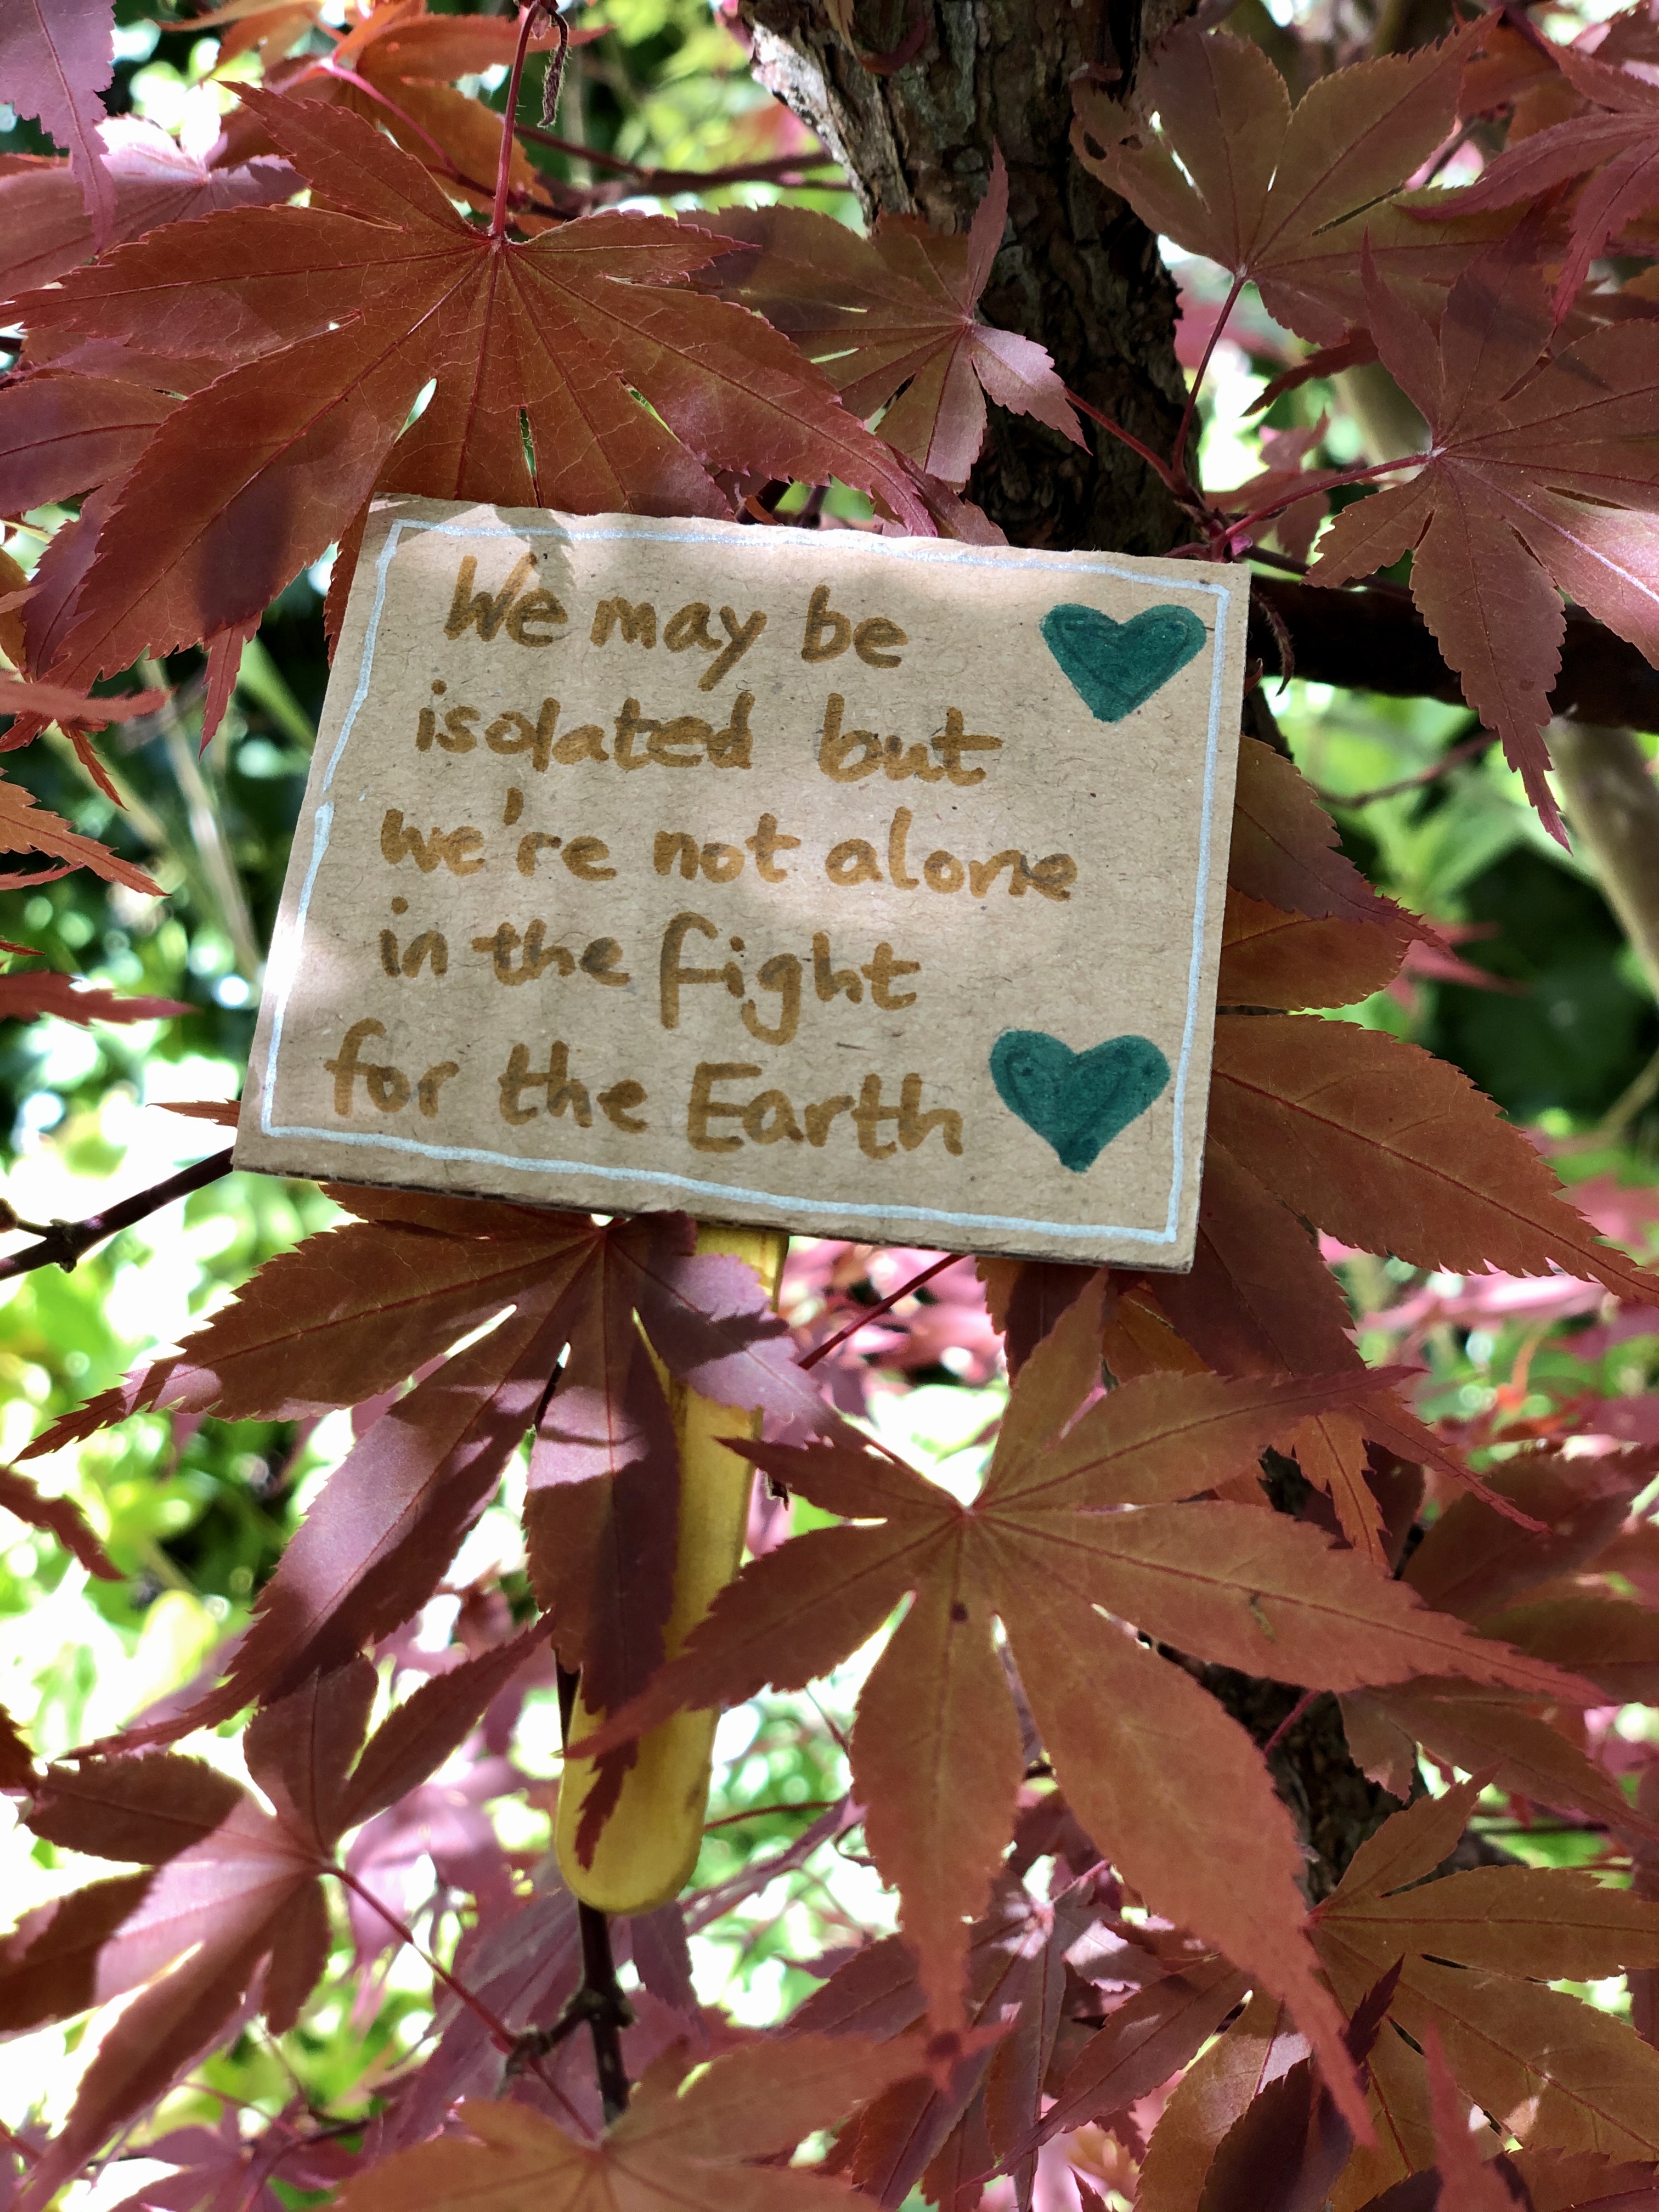 We may be
isolated but
we're not alone
in the fight
for the Earth